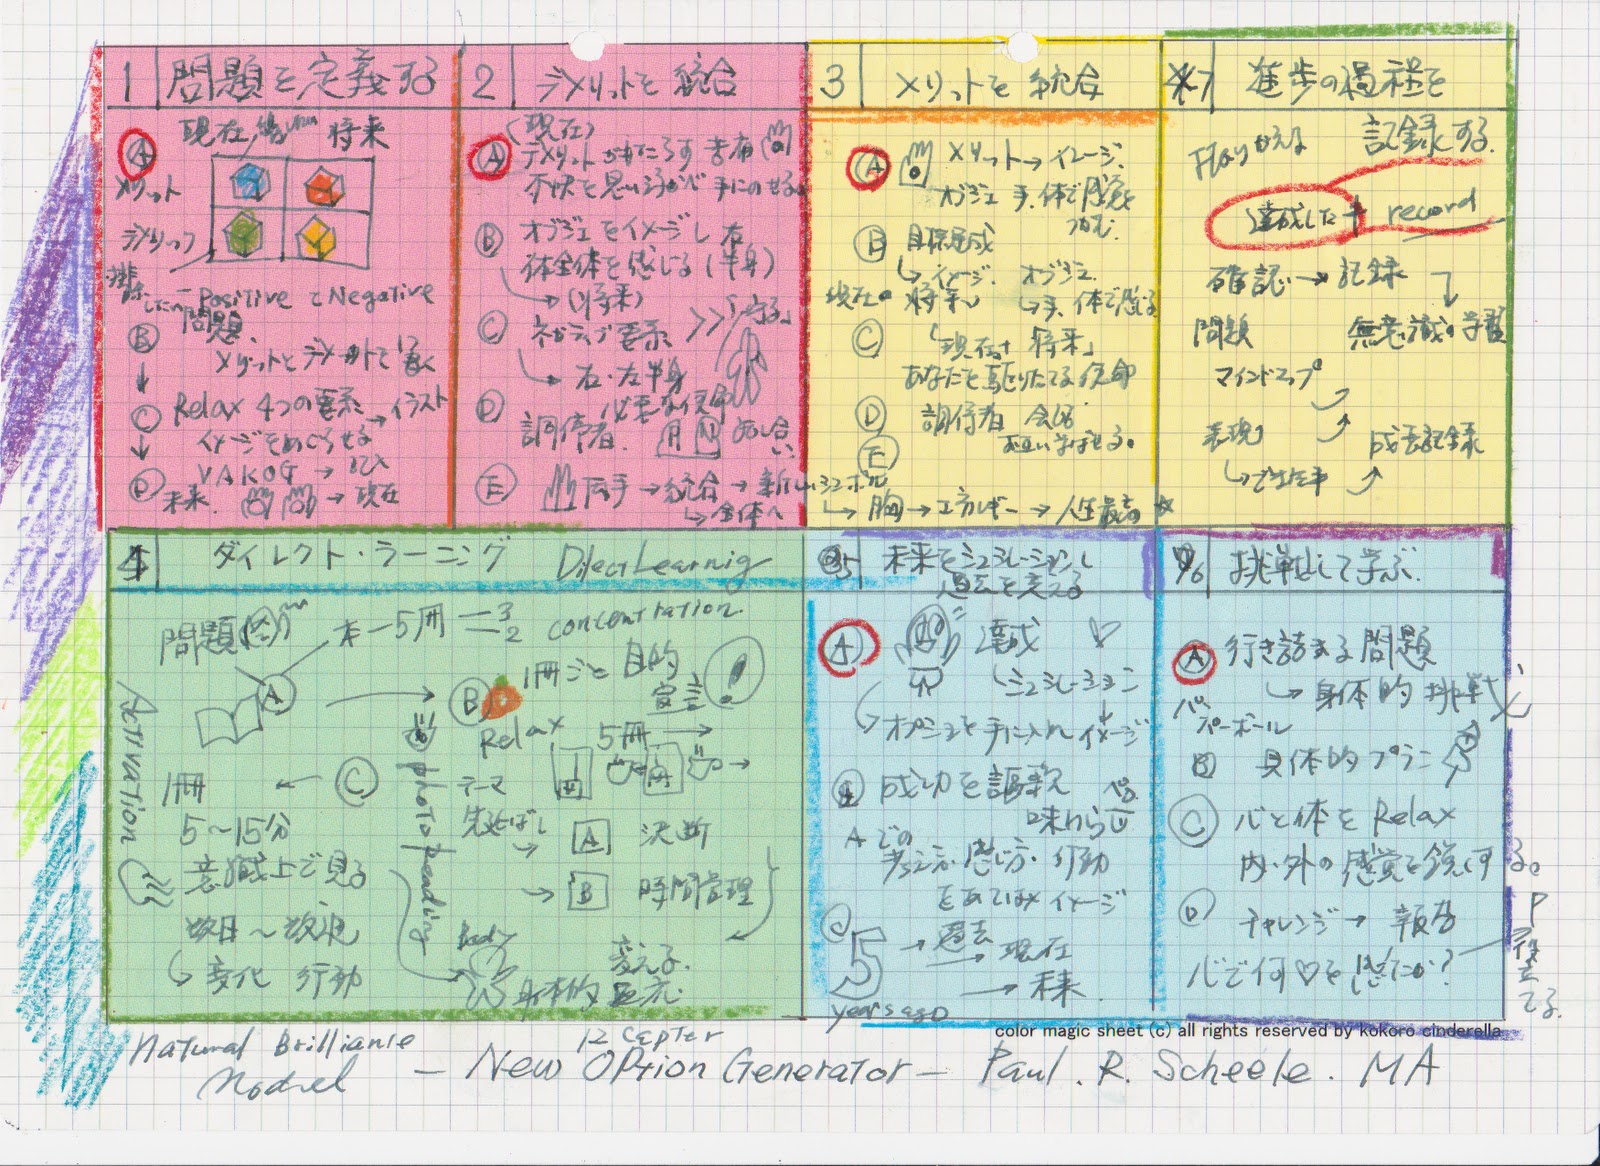 1 問題を定義する
Ⓐ 現在 将来
メリット
デメリット
排除したい
Positive と Negative
Ⓑ 問題
メリットとデメリットで書く
↓
Ⓒ Relax 4つの要素 → イラスト
↓ イメージをめぐらせる
Ⓓ VAKOG → 記入
未来 → 現在
2 デメリットを統合
(現在)
Ⓐ デメリットがもたらす苦痛
不快を思いうかべ手にのせる
Ⓑ オブジェをイメージし 右
体全体を感じる (半身)
→ (将来)
Ⓒ ネガティブ要素 >>「守る」
→ 右・左半身
Ⓓ 必要な使命
調停者 話し合い
Ⓔ 両手 → 統合 → 新しいシンボル
→ 全体へ
3 メリットを統合
Ⓐ メリット → イメージ
オブジェ 手、体で感覚を
つかむ
Ⓑ 目標達成
→ イメージ オブジェ
現在。将来 → 手、体で感じる
Ⓒ 「現在+将来」
あなたを駆りたてる使命
Ⓓ 調停者 会話
Ⓔ お互い学ばせる。
→ 胸 → エネルギー → 人生最高
7 進歩の過程を
記録する。
達成した record
確認 → 記録
問題 無意識の学習
マインドマップ
表現 成長記録
→ できた事
4 ダイレクト・ラーニング Direct Learnig
問題 本-5冊 concentration.
Ⓐ → Ⓑ 1冊ごと目的
宣言
Relax 5冊 →
Activation
photo reading
1冊 ← Ⓒ テーマ
5~15分 先延ばし → A 決断
意識上で見る → B 時間管理
数日~数週
→ 変化 行動
Body 変える。
身体的 反応
5 未来をシュミレーションし
過去を変える
Ⓐ 達成 ♡
→ シュミレーション
→ オブジェを手に入れ イメージ
成功を謳歌
味わう
Aでの
考え方・感じ方・行動
をあてはめイメージ
Ⓒ 5 → 過去
→ 現在
→ 未来
years ago
6 挑戦して学ぶ
Ⓐ 行き詰まる問題
→ 身体的挑戦
ペーパーボール
Ⓑ 具体的プラン
Ⓒ 心と体をRelax
内・外の感覚を鋭くする。
Ⓓ チャレンジ → 報告
心で何♡を感じたか?
役立てる。
color magic sheet (c) all rights reserved by kokoro cinderella
Natural Brilliance
Model
12 Cepter
— New Option Generator — Paul. R. Scheele. MA